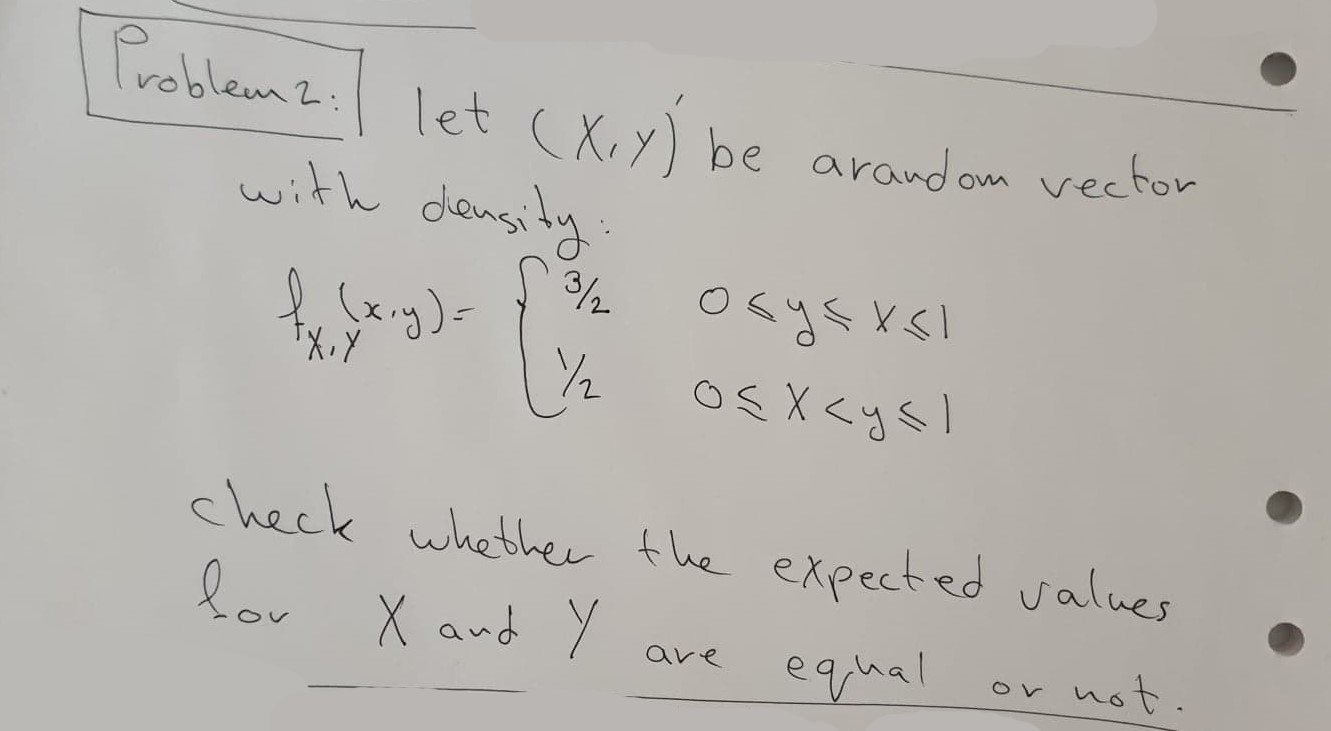 Problem 2: let (X,Y)' be a random vector
with density:
f_{X,Y}(x,y) = { 3/2 0 ≤ y ≤ x ≤ 1
1/2 0 ≤ x < y ≤ 1
check whether the expected values
for X and Y are equal or not.